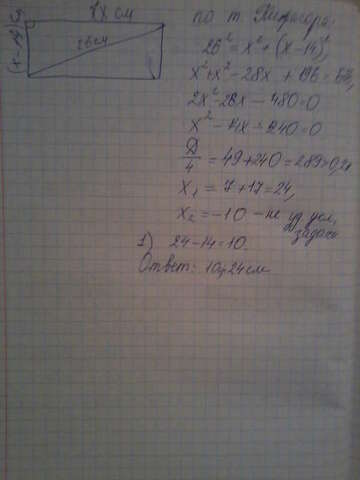 x см
(x-14) см
26 см
по т. Пифагора:
26² = x² + (x-14)²
x² + x² - 28x + 196 =
2x² - 28x - 480 = 0
x² - 14x - 240 = 0
D/4 = 49 + 240 = 289 > 0,
x₁ = 7 + 17 = 24,
x₂ = -10 - не уд. усл.
задачи
1) 24 - 14 = 10.
Ответ: 10, 24 см